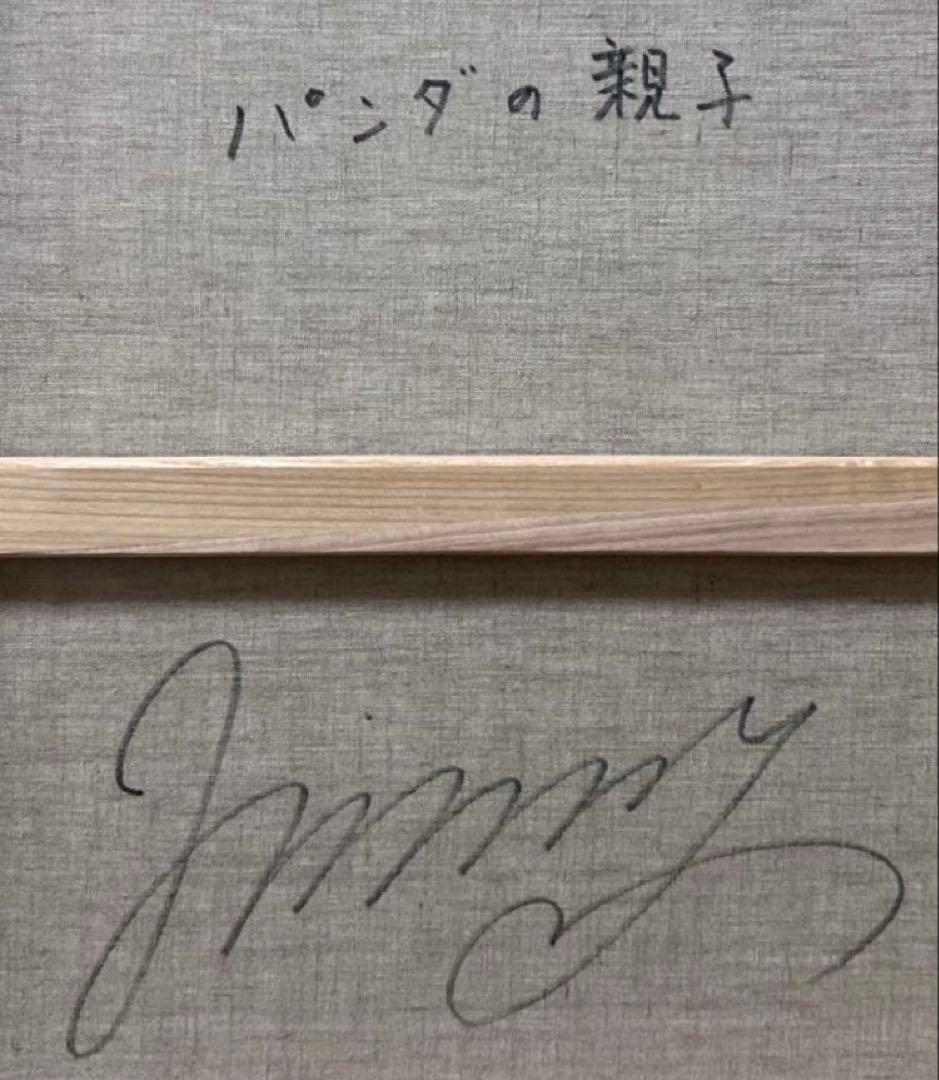 パンダの親子
Jimmy